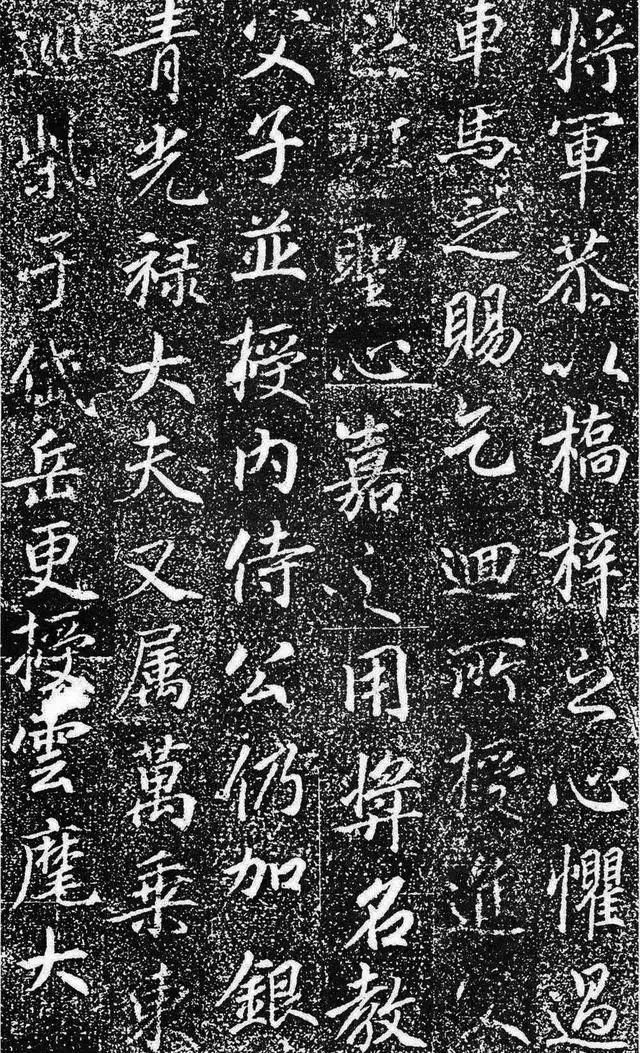 将軍恭以橋梓之心懼過
車馬之賜乞迴所授進父
之班聖心嘉之用獎名教
父子並授内侍公仍加銀
青光禄大夫又属萬乘東
巡柴于岱岳更授雲麾大